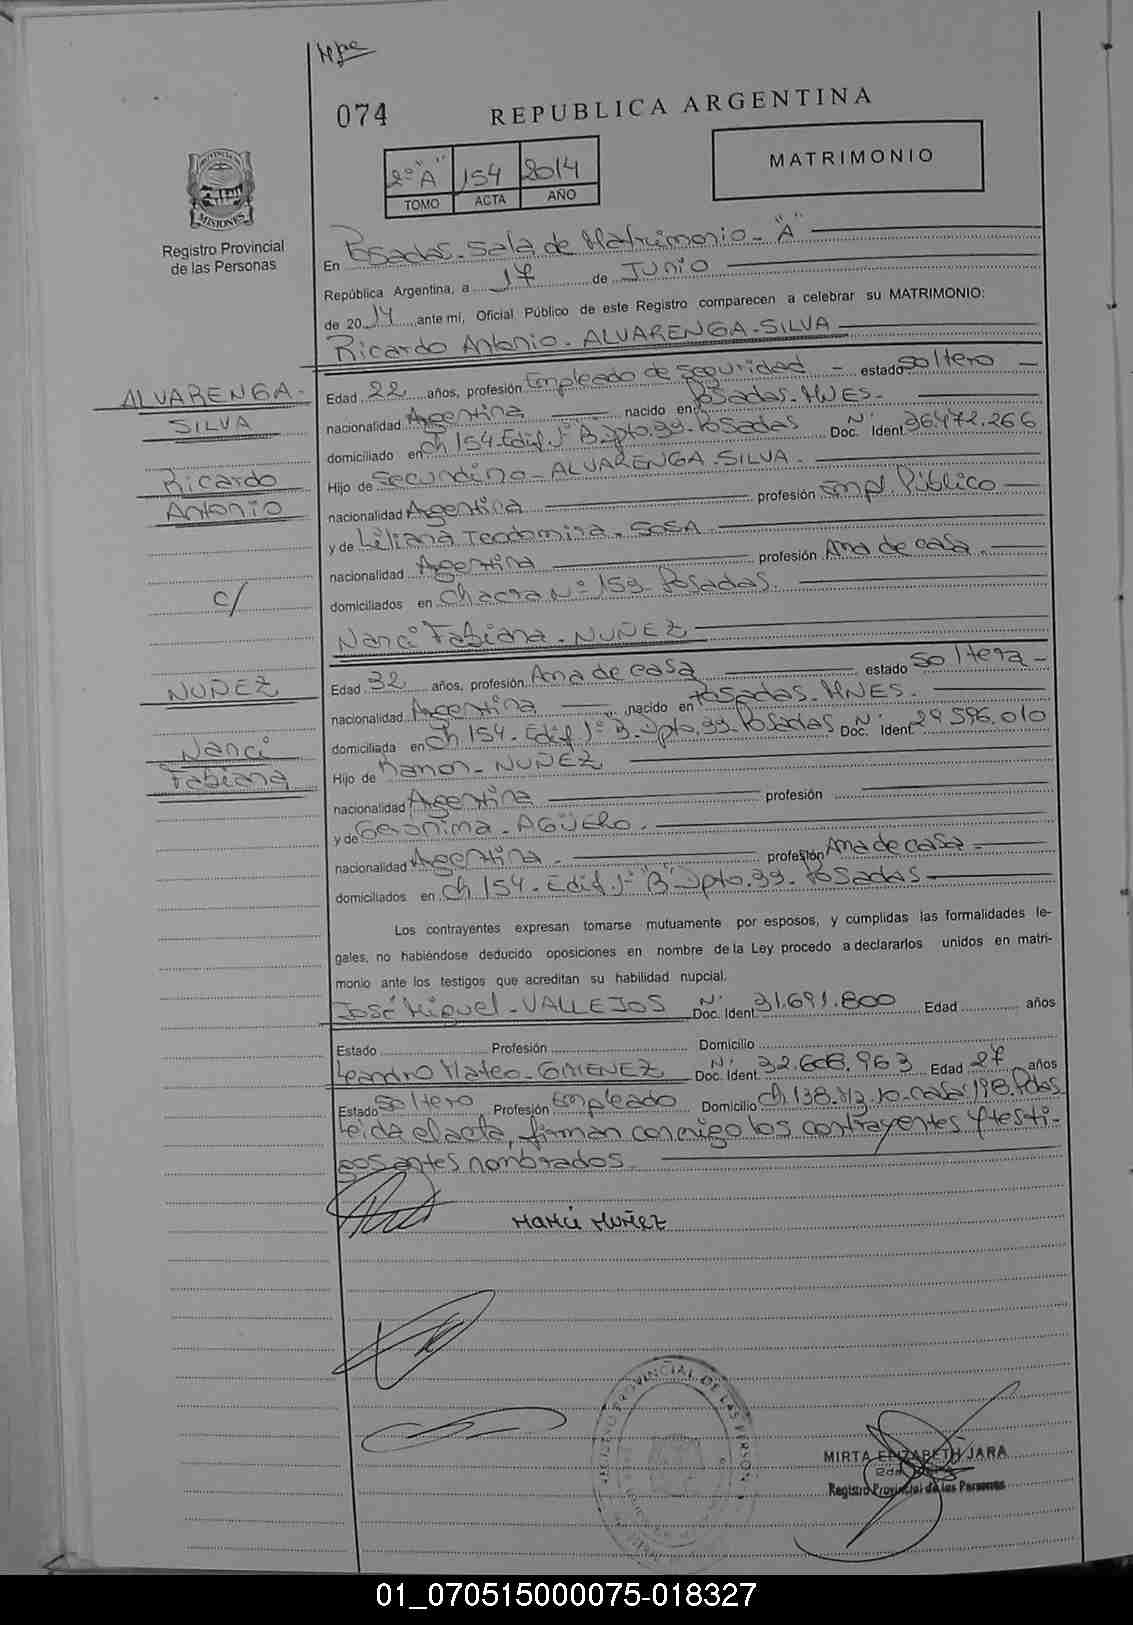 074
REPUBLICA ARGENTINA
MATRIMONIO
2º "A" 154 2014
TOMO ACTA AÑO
PROVINCIA DE
MISIONES
Registro Provincial
de las Personas
En Posadas. Sala de Matrimonio - "A"
República Argentina, a 17 de Junio
de 2014 ante mí, Oficial Público de este Registro comparecen a celebrar su MATRIMONIO:
Ricardo Antonio - ALVARENGA - SILVA
ALVARENGA -
SILVA
Ricardo
Antonio
c/
NUÑEZ
Nanci
Fabiana
Edad 22 años, profesión Empleado de seguridad - estado soltero -
nacionalidad Argentina nacido en Posadas. MNES.
domiciliado en Ch 154. Edif. J- B. Dpto. 99. Posadas Nº Doc. Ident. 36.472.266
Hijo de Secundino - ALVARENGA - SILVA.
nacionalidad Argentina profesión Empl. Público
y de Liliana Teodomira. SOSA
nacionalidad Argentina profesión Ama de casa.
domiciliados en Chacra Nº 159. Posadas.
Nanci Fabiana - NUÑEZ
Edad 32 años, profesión Ama de casa estado soltera -
nacionalidad Argentina nacido en Posadas. MNES.
domiciliada en Ch 154. Edif J- B. Dpto. 99. Posadas Nº Doc. Ident. 29.596.010
Hijo de Ramon - NUÑEZ
nacionalidad Argentina profesión
y de Geronima - AGÜERO.
nacionalidad Argentina - profesión Ama de casa -
domiciliados en Ch 154. Edif. J- "B" Dpto. 99. Posadas
Los contrayentes expresan tomarse mutuamente por esposos, y cumplidas las formalidades le-
gales, no habiéndose deducido oposiciones en nombre de la Ley procedo a declararlos unidos en matri-
monio ante los testigos que acreditan su habilidad nupcial.
José Miguel - VALLEJOS Nº Doc. Ident. 31.691.800 Edad años
Estado Profesión Domicilio
Leandro Mateo - GIMENEZ Nº Doc. Ident. 32.608.963 Edad 27 años
Estado soltero Profesión Empleado Domicilio Ch. 138. Mz. 10. casa 198. Pdas
Leída el acta, firman conmigo los contrayentes y testi-
gos antes nombrados.
NANCI NUÑEZ
REGISTRO PROVINCIAL DE LAS PERSON
MIRTA ELIZABETH JARA
Registro Provincial de las Personas
01_070515000075-018327